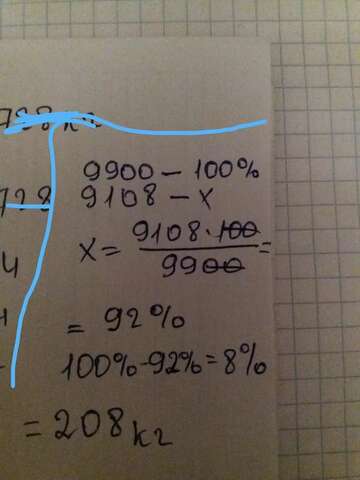 728
9900 – 100%
9108 – x
x = 9108·100 / 9900 =
= 92%
100%-92%=8%
= 208 кг